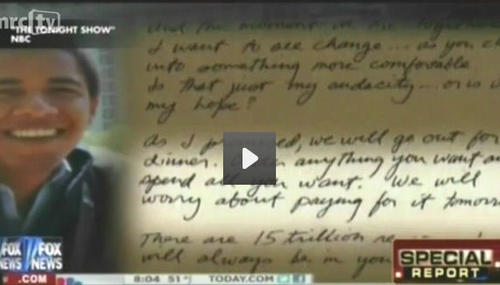 mrctv
"THE TONIGHT SHOW"
NBC
And the moment we are
I want to see change... as you
into something more comfortable
Is that just my audacity... or is
my hope?
As I promised, we will go out for
dinner. anything you want
spend all you want. We will
worry about paying for it tomorr
There are 15 trillion
will always be in you
FOX NEWS FOX NEWS
.COM
8:04 51° TODAY.COM
SPECIAL REPORT